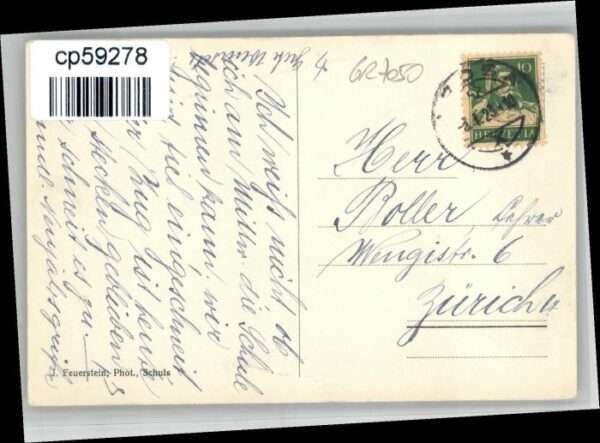 cp59278
GR 7050
10
HELVETIA
Herr
Boller, Lehrer
Wengistr. 6
Zürich 4
Ich weiß nicht ob
ich am Mittw. die Schule
beginnen kann. wir
sind tief eingeschneit
Zug ist heute
stecken geblieben
schneit es zu.
J. Feuerstein, Phot., Schuls